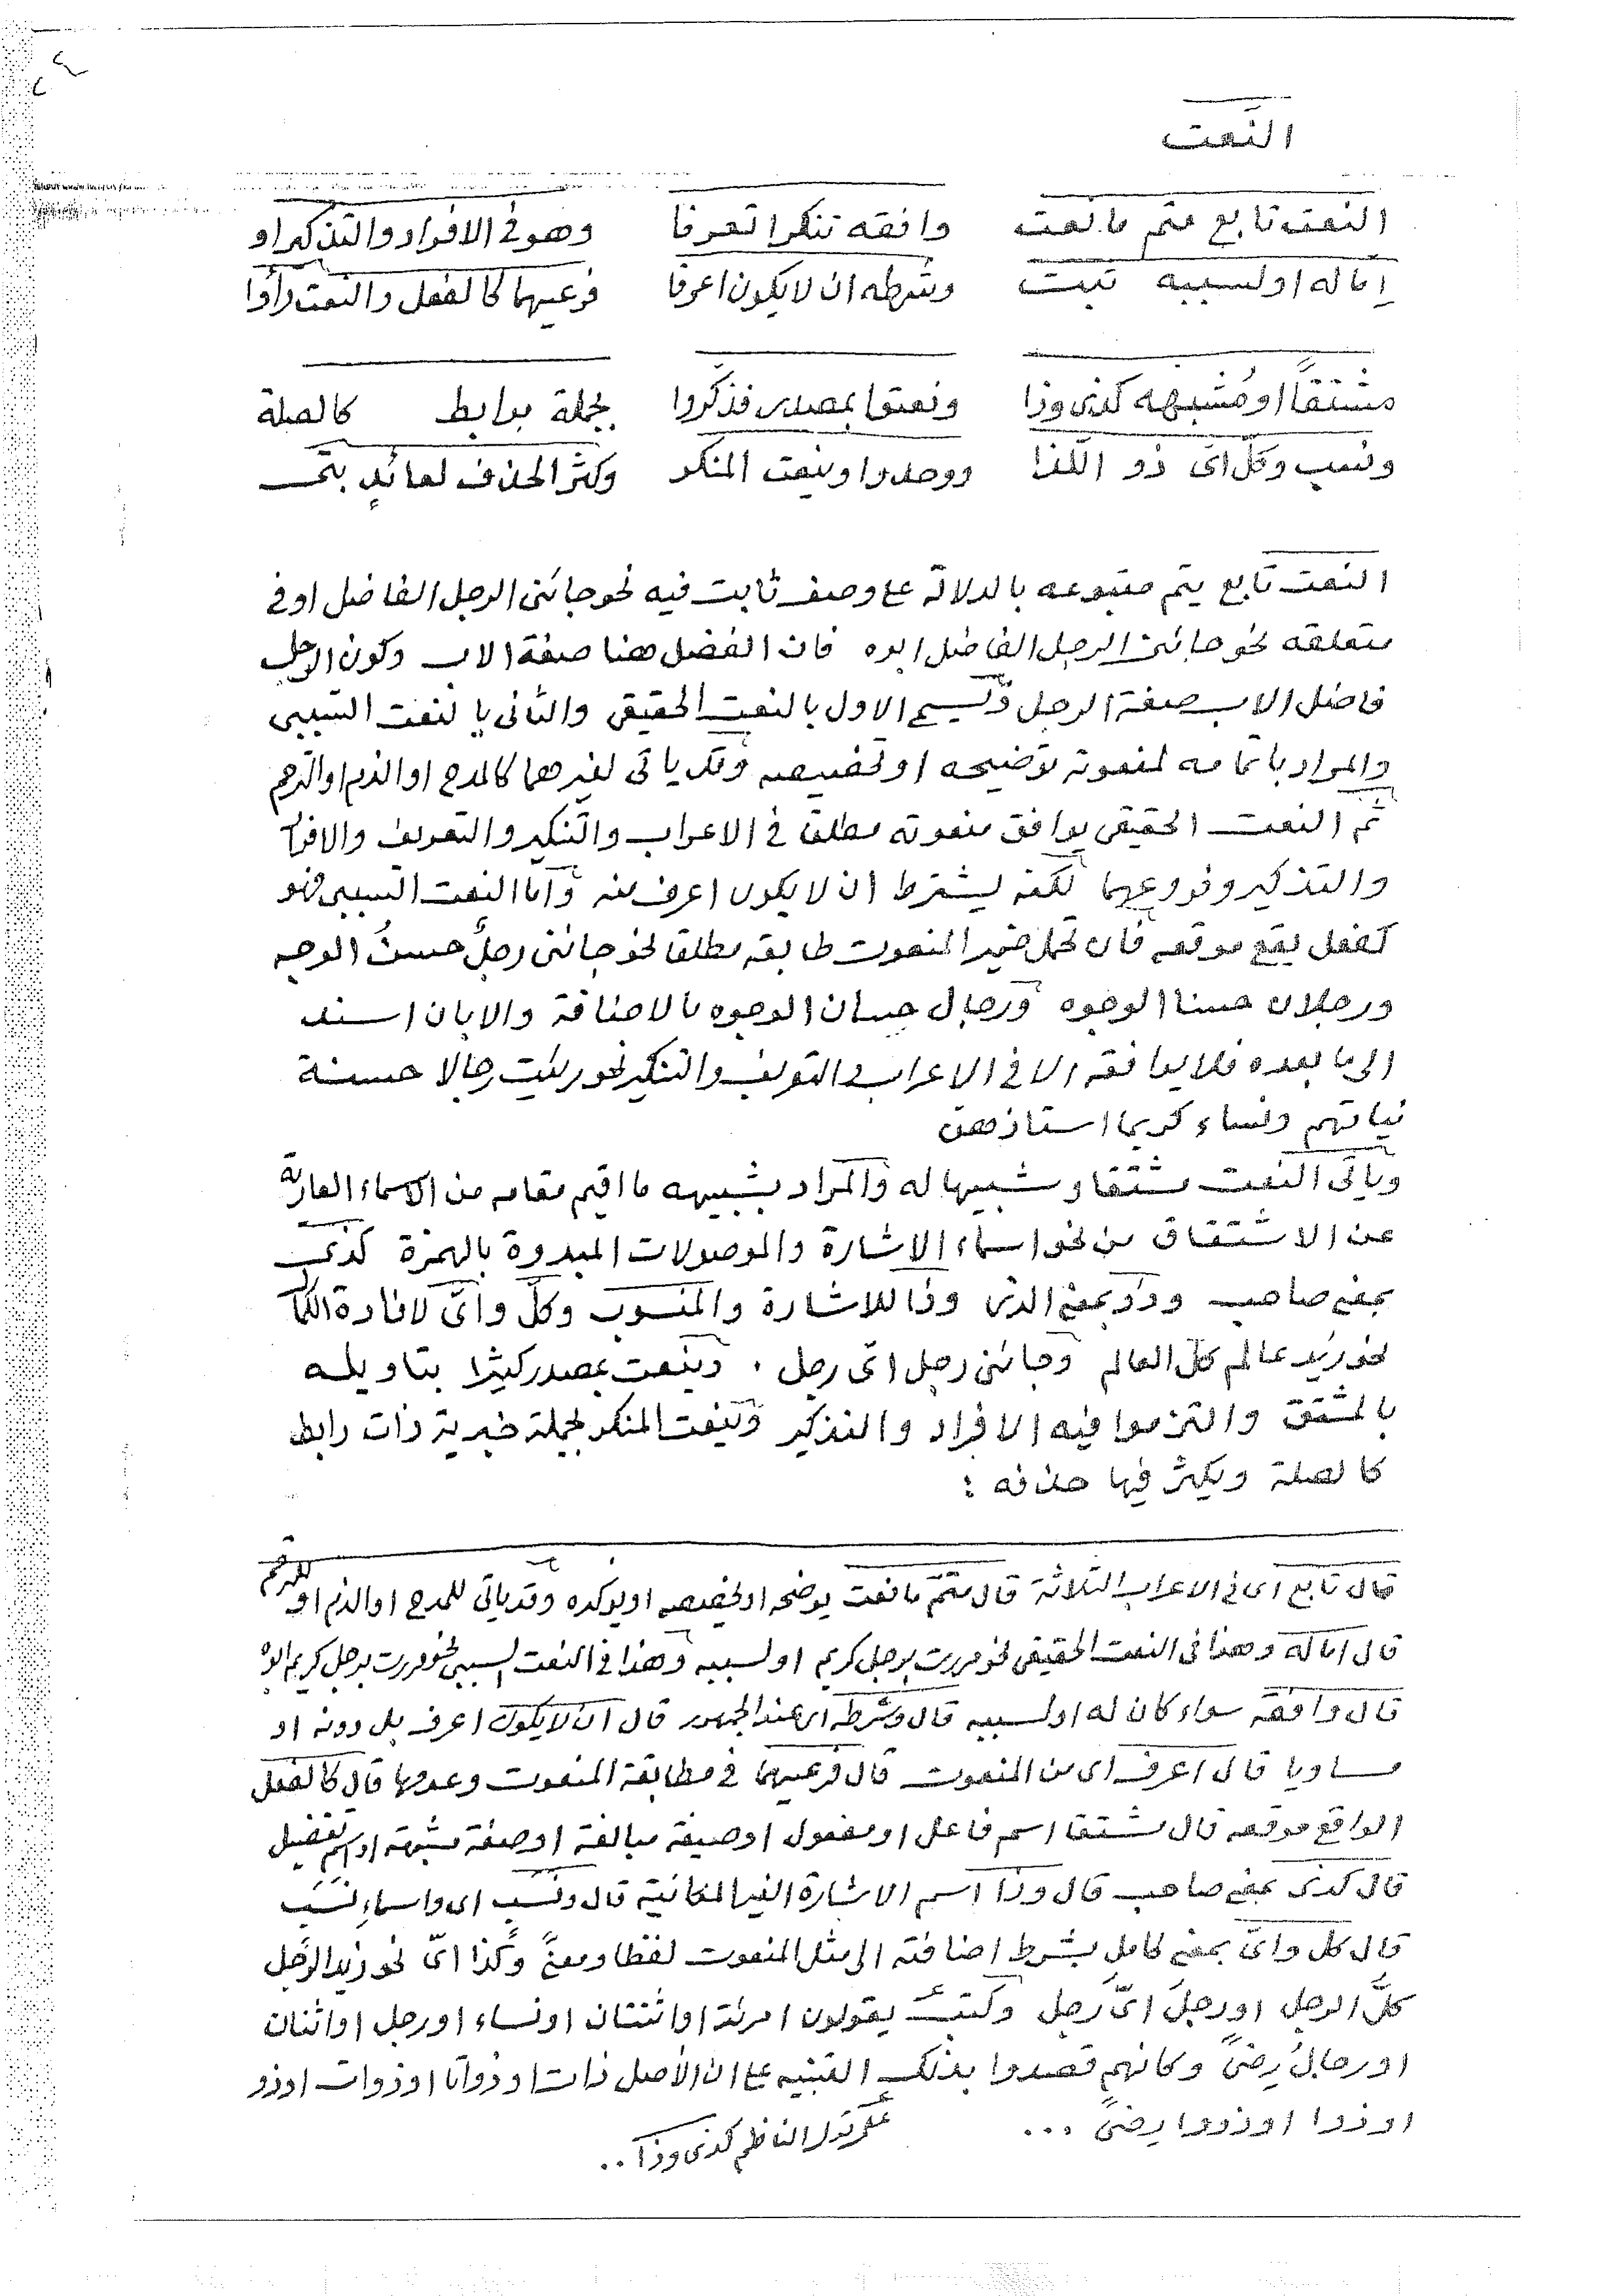 النَّعت
النعت تابع متم ما نعت وافقه تنكرا تعرفا وهو في الافراد والتذكير او
إمّا له او لسببه ثبت وشرطه ان لا يكون اعرفا فرعيهما كالفعل والنعت رأوا
مشتقًا او مُشبهه كذى وذا ونعتوا بمصدر فذكّروا بجملة برابط كالصلة
ونسب وكلّ اىّ ذو اللّذا ووحدوا وينعت المنكر وكثر الحذف لعائدٍ
النعت تابع يتم متبوعه بالدلالة على وصف ثابت فيه نحو جائنى الرجل الفاضل او فى
متعلقه نحو جائنى الرجل الفاضل ابوه فان الفضل هنا صفة الاب وكون الرجل
فاضل الاب صفة الرجل ويسمى الاول بالنعت الحقيقى والثانى بالنعت السببى
والمراد باتمامه لمنعوته توضيحه او تخصيصه وقد ياتى لغيرهما كالمدح او الذم او الترحم
ثم النعت الحقيقى يوافق منعوته مطلقا فى الاعراب والتنكير والتعريف والافراد
والتذكير وفروعهما لكنه يشترط ان لا يكون اعرف منه وأما النعت السببى فهو
كفعل يقع موقعه فان تحمل ضمير المنعوت طابقه مطلقا نحو جائنى رجلٌ حسنُ الوجه
ورجلان حسنا الوجوه ورجال حسان الوجوه بالاضافة والا بان اسند
الى ما بعده فلا يوافقه الا فى الاعراب والتعريف والتنكير نحو رئيت رجالا حسنة
نياتهم ونساء كريما استاذهن
وياتى النعت مشتقا وشبيها له والمراد بشبيهه ما اقيم مقامه من الاسماء العارية
عن الاشتقاق من نحو اسماء الاشارة والموصولات المبدوة بالهمزة كذى
بمعنى صاحب وذو بمعنى الذى وذا للاشارة والمنسوب وكلّ واىّ لافادة الكمال
نحو زيد عالم كلّ العالم وجائنى رجل اىّ رجل . وينعت بمصدر كثيرا بتاويله
بالمشتق والتزموا فيه الافراد والتذكير وينعت المنكر بجملة خبرية ذات رابط
كالصلة ويكثر فيها حذفه :
قال تابع اى فى الاعراب الثلاثة قال متمّ ما نعت يوضحه او يخصصه او يوكده وقد ياتى للمدح او الذم او للترحم
قال اما له وهذا فى النعت الحقيقى نحو مررت برجل كريم او لسببه وهذا فى النعت السببى نحو مررت برجل كريم ابوه
قال وافقه سواء كان له او لسببه قال وشرطه اى عند الجمهور قال ان لا يكون اعرف بل دونه او
مساويا قال اعرف اى من المنعوت قال فرعيهما فى مطابقة المنعوت وعدمها قال كالفعل
الواقع موقعه قال مشتقا اسم فاعل او مفعول او صيغة مبالغة او صفة مشبهة او اسم تفضيل
قال كذى بمعنى صاحب قال وذا اسم الاشارة الغير المكانية قال ونسب اى واسماء نسب
قال كل واىّ بمعنى كامل بشرط اضافته الى مثل المنعوت لفظا ومعنًى وكذا اىّ نحو زيد الرجل
كلُّ الرجل او رجلَ اىَّ رجل وكتب يقولون امرئة او اثنتان او نساء او رجل او اثنان
او رجالٌ رِضىً وكانهم قصدوا بذلك التنبيه على ان الأصل ذات او ذواتا او ذوات او ذو
او ذوا او ذووا رضىً ...
على قول الناظم كذى وذا ..